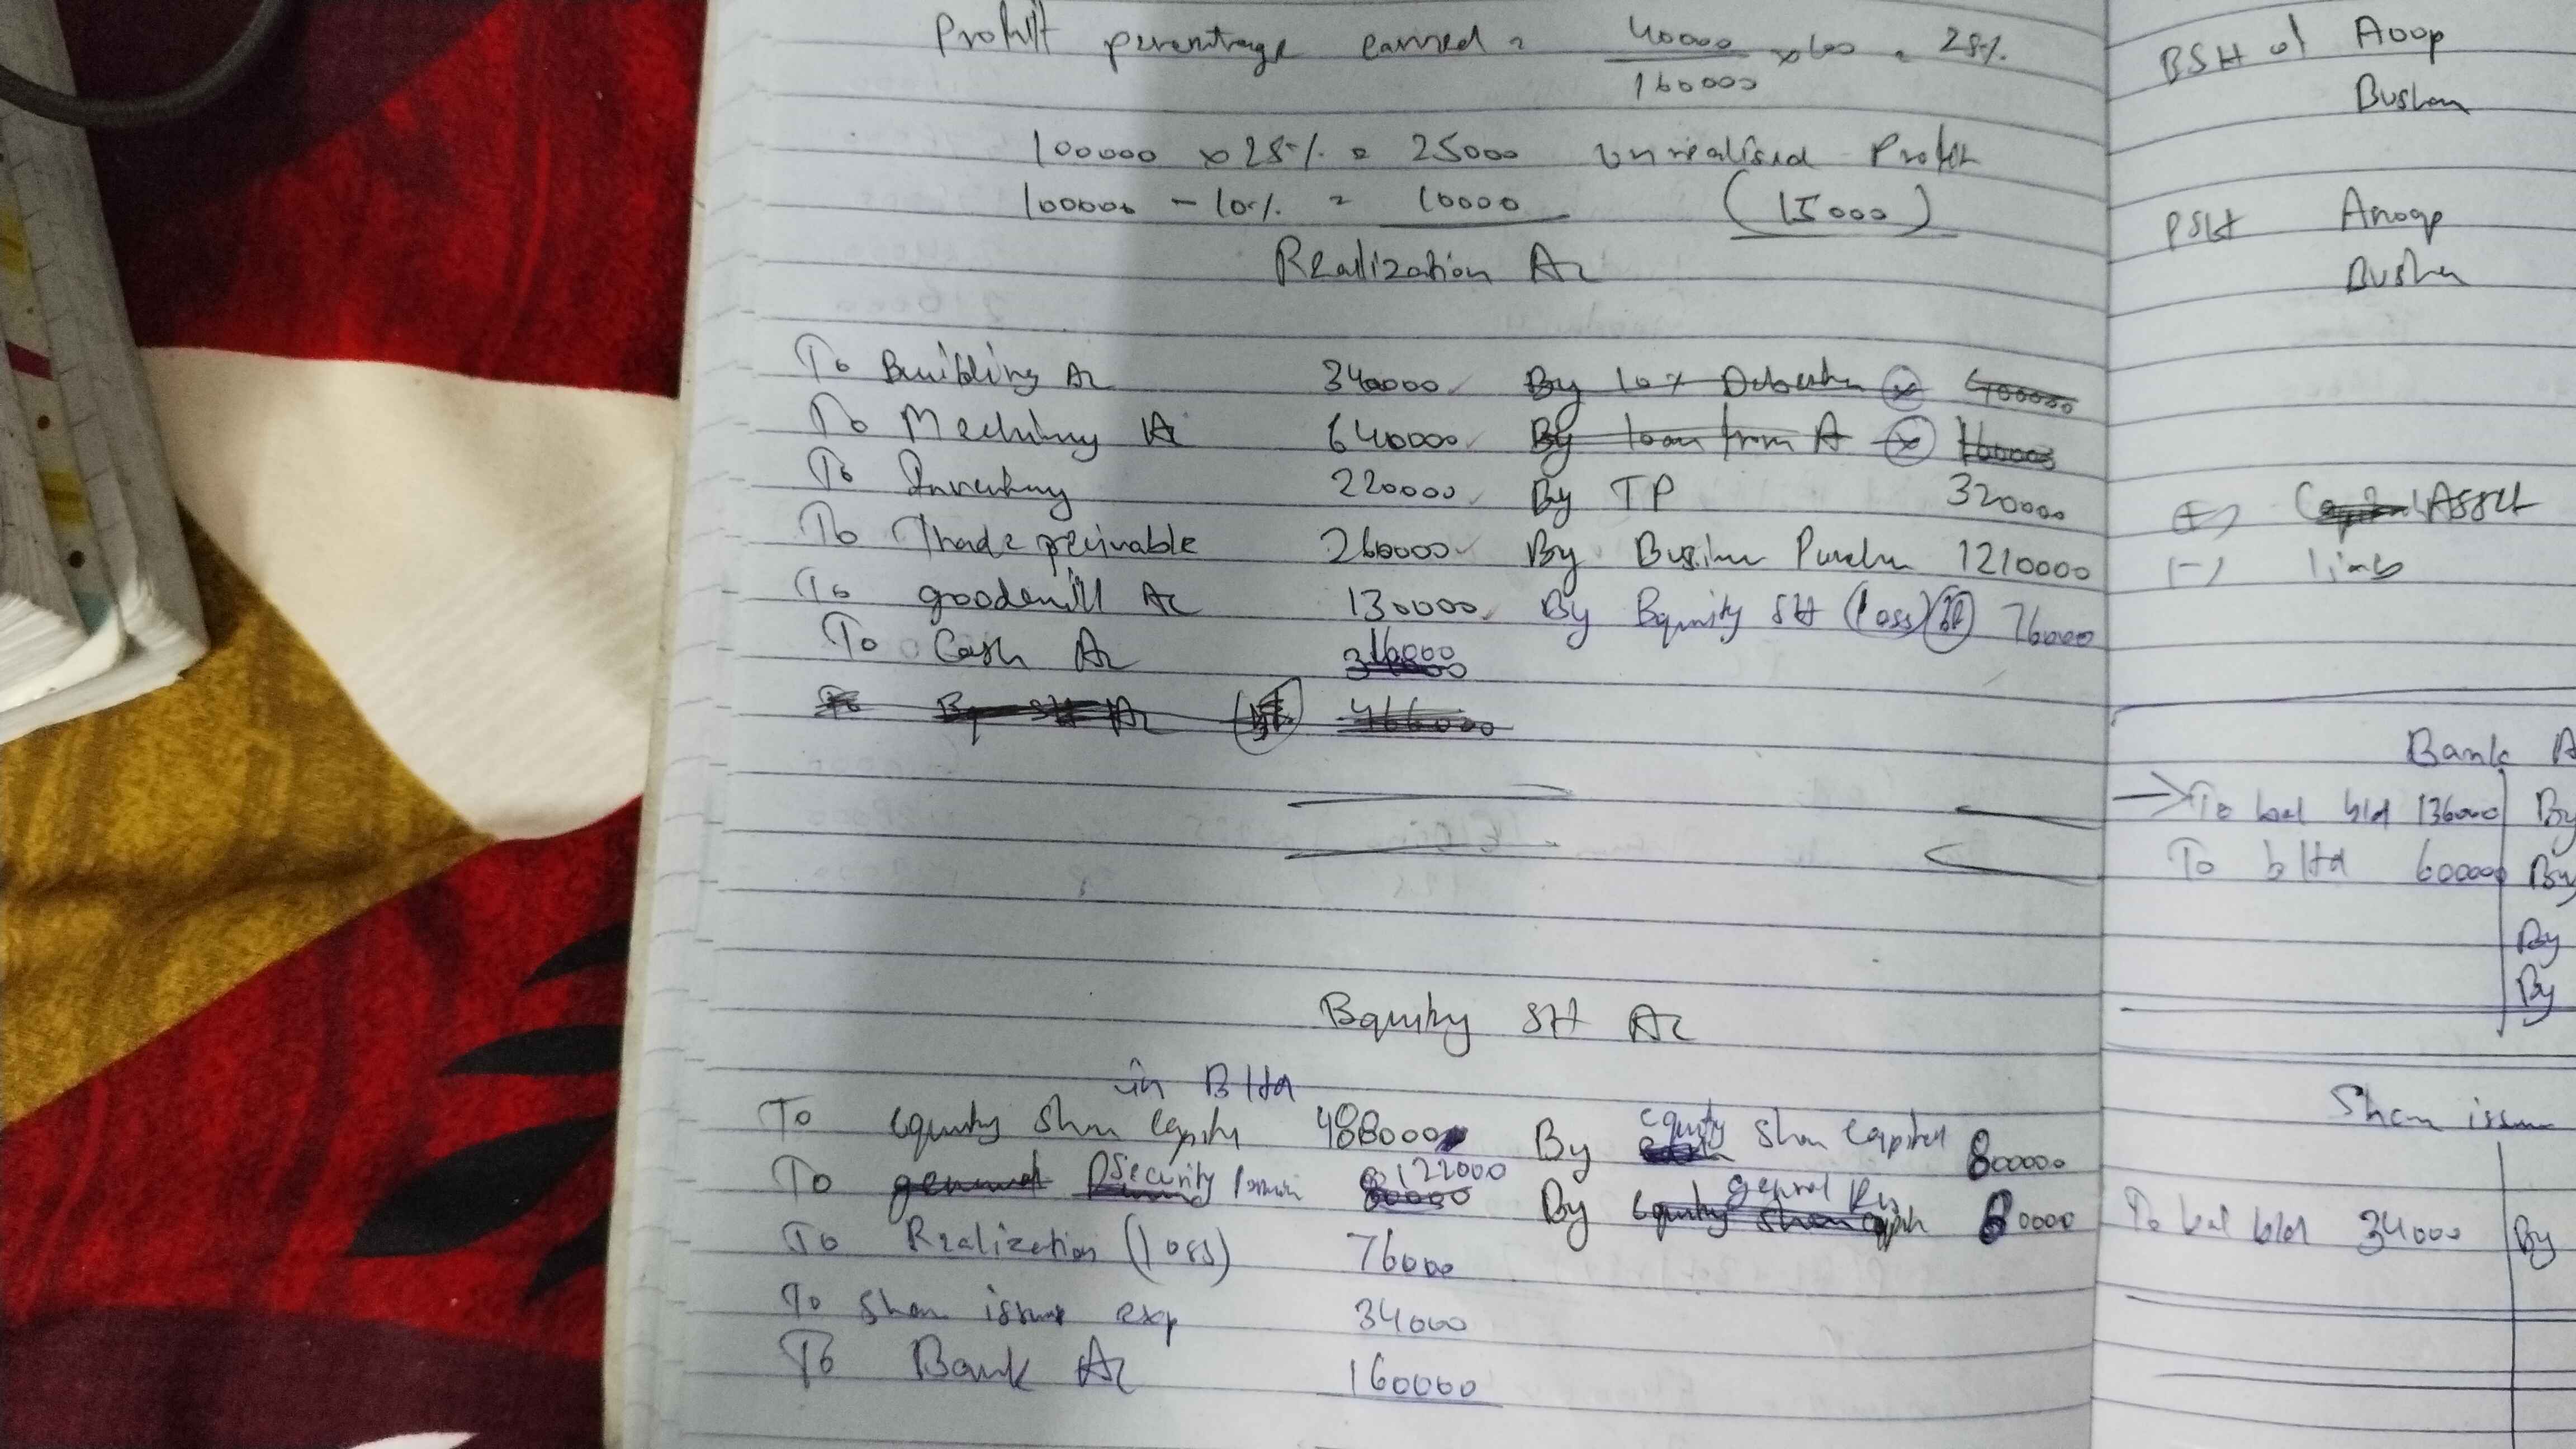 Profit percentage earned = 40000 / 160000 x 100 = 25%
100000 x 25% = 25000 unrealised Profit
100000 - 10% = 10000 (15000)
Realization Ac
To Building Ac 340000 By 10% Debentu 400000
To Machinny Ac 640000 By loan from A 160000
To Inventory 220000 By TP 320000
To Thade recivable 260000 By Busine Purchu 1210000
To goodwill Ac 130000 By Equity SH (loss) 76000
To Cash Ac 16000
To Eq SH Ac 466000
Equity SH Ac
in B ltd
To equity Shre capity 408000 By equity Shar capital 800000
To Security 122000 By general Res 80000
To Realization (loss) 76000
To Share issue exp 34000
To Bank Ac 160000
ESH of Anoop
Bushan
PSH Anoop
Bushn
(+) Asset
(-) liab
Bank A
To bal b/d 136000 By
To b ltd 60000 By
By
By
Shar issue
To bal b/d 34000 By